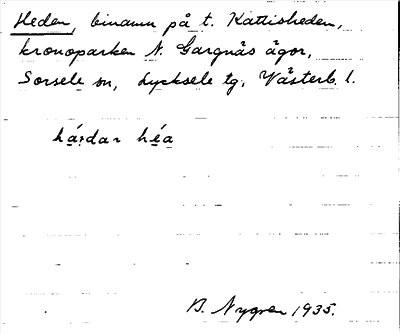 Heden, binamn på t. Kattisheden,
kronoparken N. Gargnäs ägor,
Sorsele sn, Lycksele tg, Västerb. l.
héa
B. Nygren 1935.